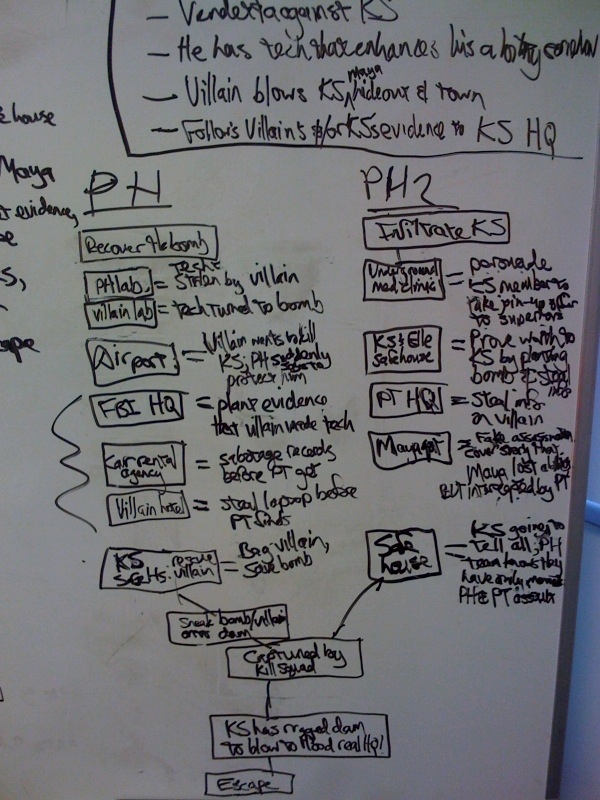 — Vendetta against KS
— He has tech that enhances his ability somehow
— Villain blows KS, Maya hideout & town
— Follows Villain's &/or KS's evidence to KS HQ
house
Maya
evidence,
PH
Recover the bomb
PH lab = techs stolen by villain
villain lab = tech turned to bomb
Airport = Villain wants to kill
KS; PH suddenly
protect him
FBI HQ = plant evidence
that villain made tech
Car rental
agency = sabotage records
before PT get
Villain hotel = steal laptop before
PT finds
KS
rescue
villain = Bag villain,
save bomb
PH2
Infiltrate KS
Underground
med clinic = persuade
KS member to
take
to superiors
KS & Elle
safehouse = Prove worth to
KS by planting
bomb & steal
info
PT HQ = Steal info
on villain
Maya = Fake assassination
cover story that
Maya lost
BUT intercepted by PT
Safe
house = KS going to
tell all; PH
team knows they
have only
PH & PT assault
Sneak bomb/villain
dam
Captured by
Kill Squad
KS has rigged dam
to blow to flood real HQ!
Escape